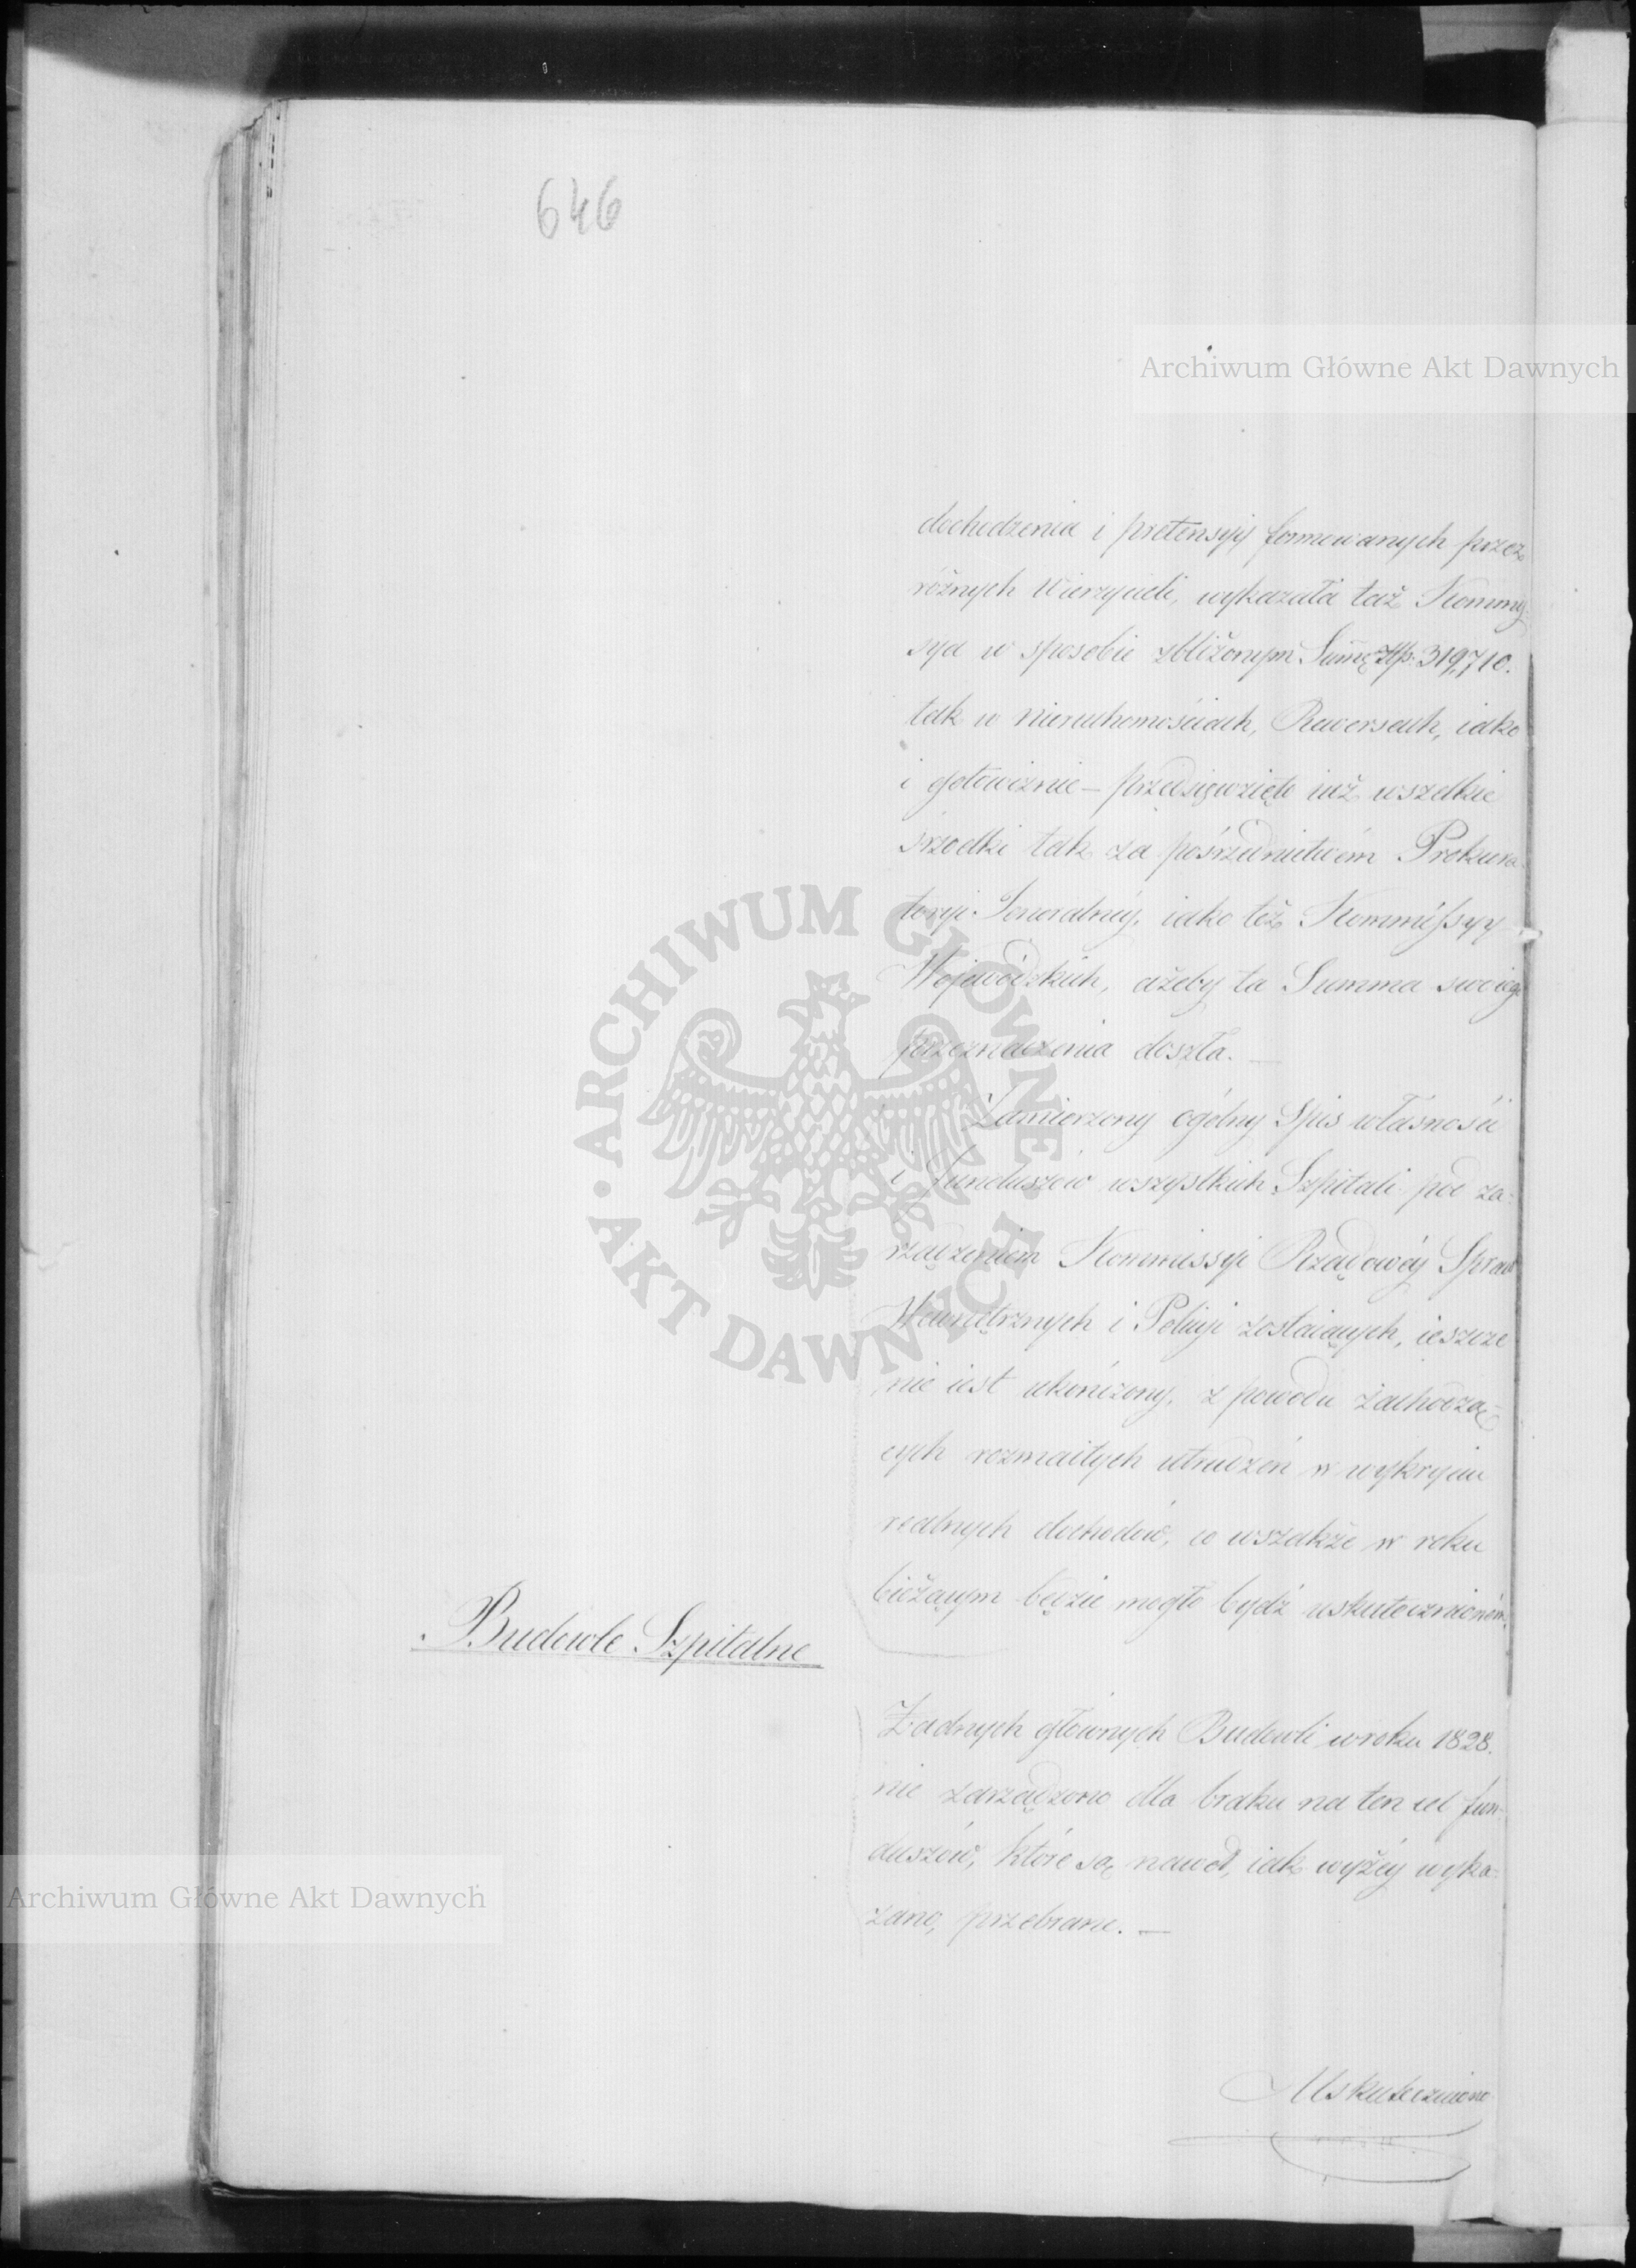 646
Archiwum Główne Akt Dawnych
dochodzenia i pretensyi formowanych przez
różnych Wierzycieli, wykazała taż Kommis-
sya w sposobie zbliżonym Summę Złp. 319,710.
tak w nieruchomościach, Rewersach, iako
i gotowiznie – przedsięwzięto iuż wszelkie
śrzodki tak za pośrzednictwem Prokura-
toryi Jeneralnéy, iako też Kommissyy
Wojewódzkich, ażeby ta Summa swoiego
przeznaczenia doszła. —
Zamierzony ogólny Spis własności
i funduszów wszystkich Szpitali pod za-
rządzeniem Kommissyi Rządowéy Spraw
Wewnętrznych i Policyi zostaiących, ieszcze
nie iest ukończony, z powodu zachodzą-
cych rozmaitych utrudzeń w wykryciu
realnych dochodów, co wszakże w roku
bieżącym będzie mogło bydź uskutecznioném.
Budowle Szpitalne
Żadnych głównych Budowli w roku 1828.
nie zarządzono dla braku na ten cel fun-
duszów, które są nawet, iak wyżéy wyka-
zano, przebrane. —
Uskutecznione
ARCHIWUM GŁÓWNE
AKT DAWNYCH
Archiwum Główne Akt Dawnych